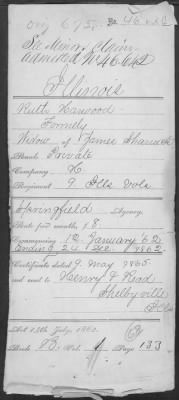 See Minor Claim
Admitted No 46642
Illinois
Ruth Harwood
Formerly
Widow of James
Rank Private
Company K
Regiment 9 Ills Vols
Springfield Agency.
Rate per month, $8.
Commencing 12 January '62
ending 24 Dec 1862
Certificate dated 9 May 1865
and sent to Henry F Read
Shelbyville
Ills
Act 14th July, 1862.
Book B. Vol. 1 Page 133